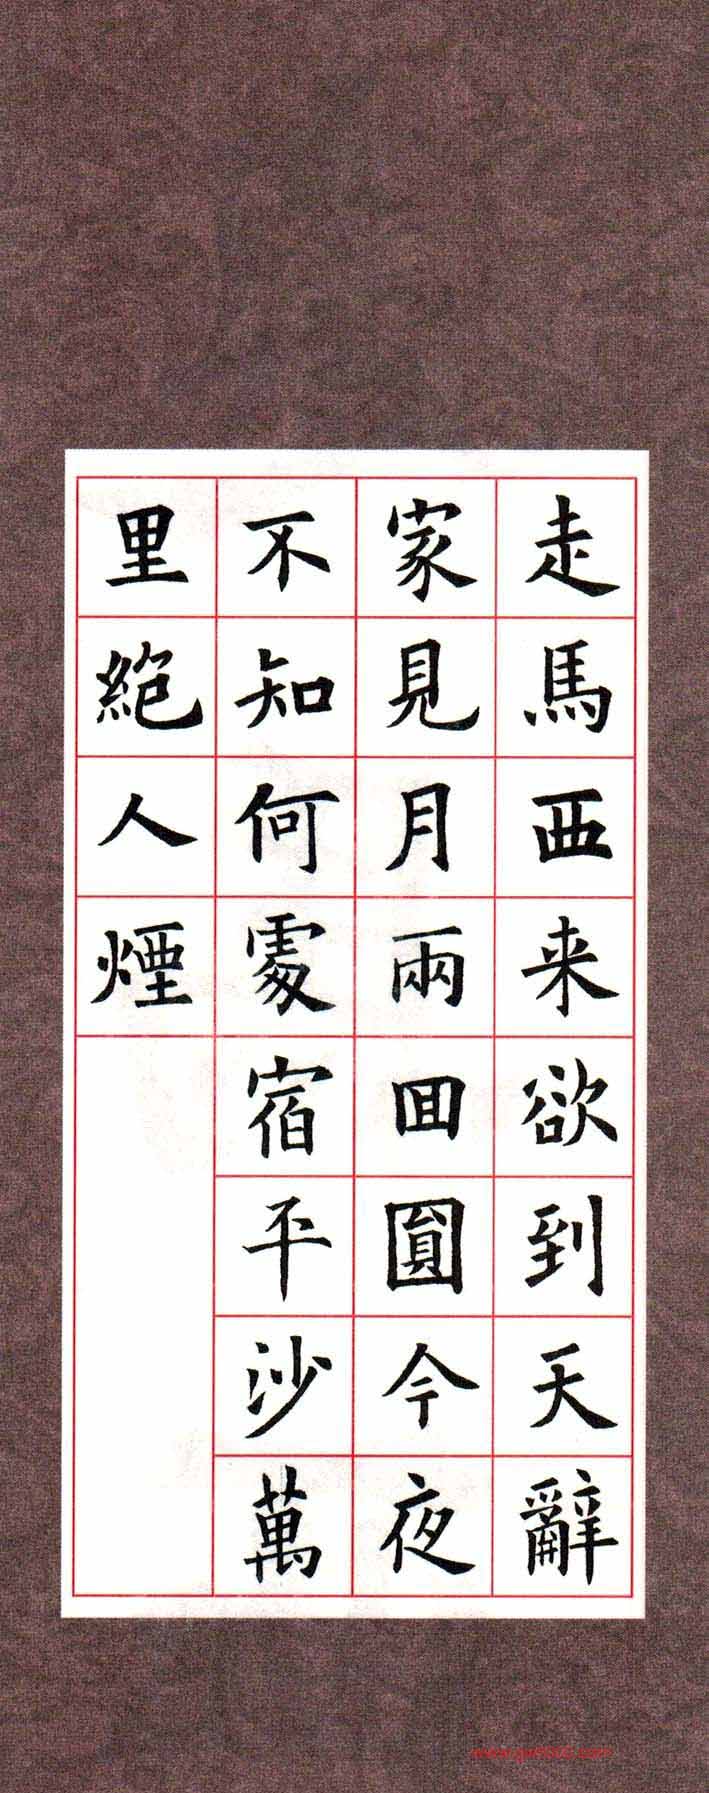 走馬西来欲到天辭
家見月兩囬圓今夜
不知何處宿平沙萬
里絶人煙